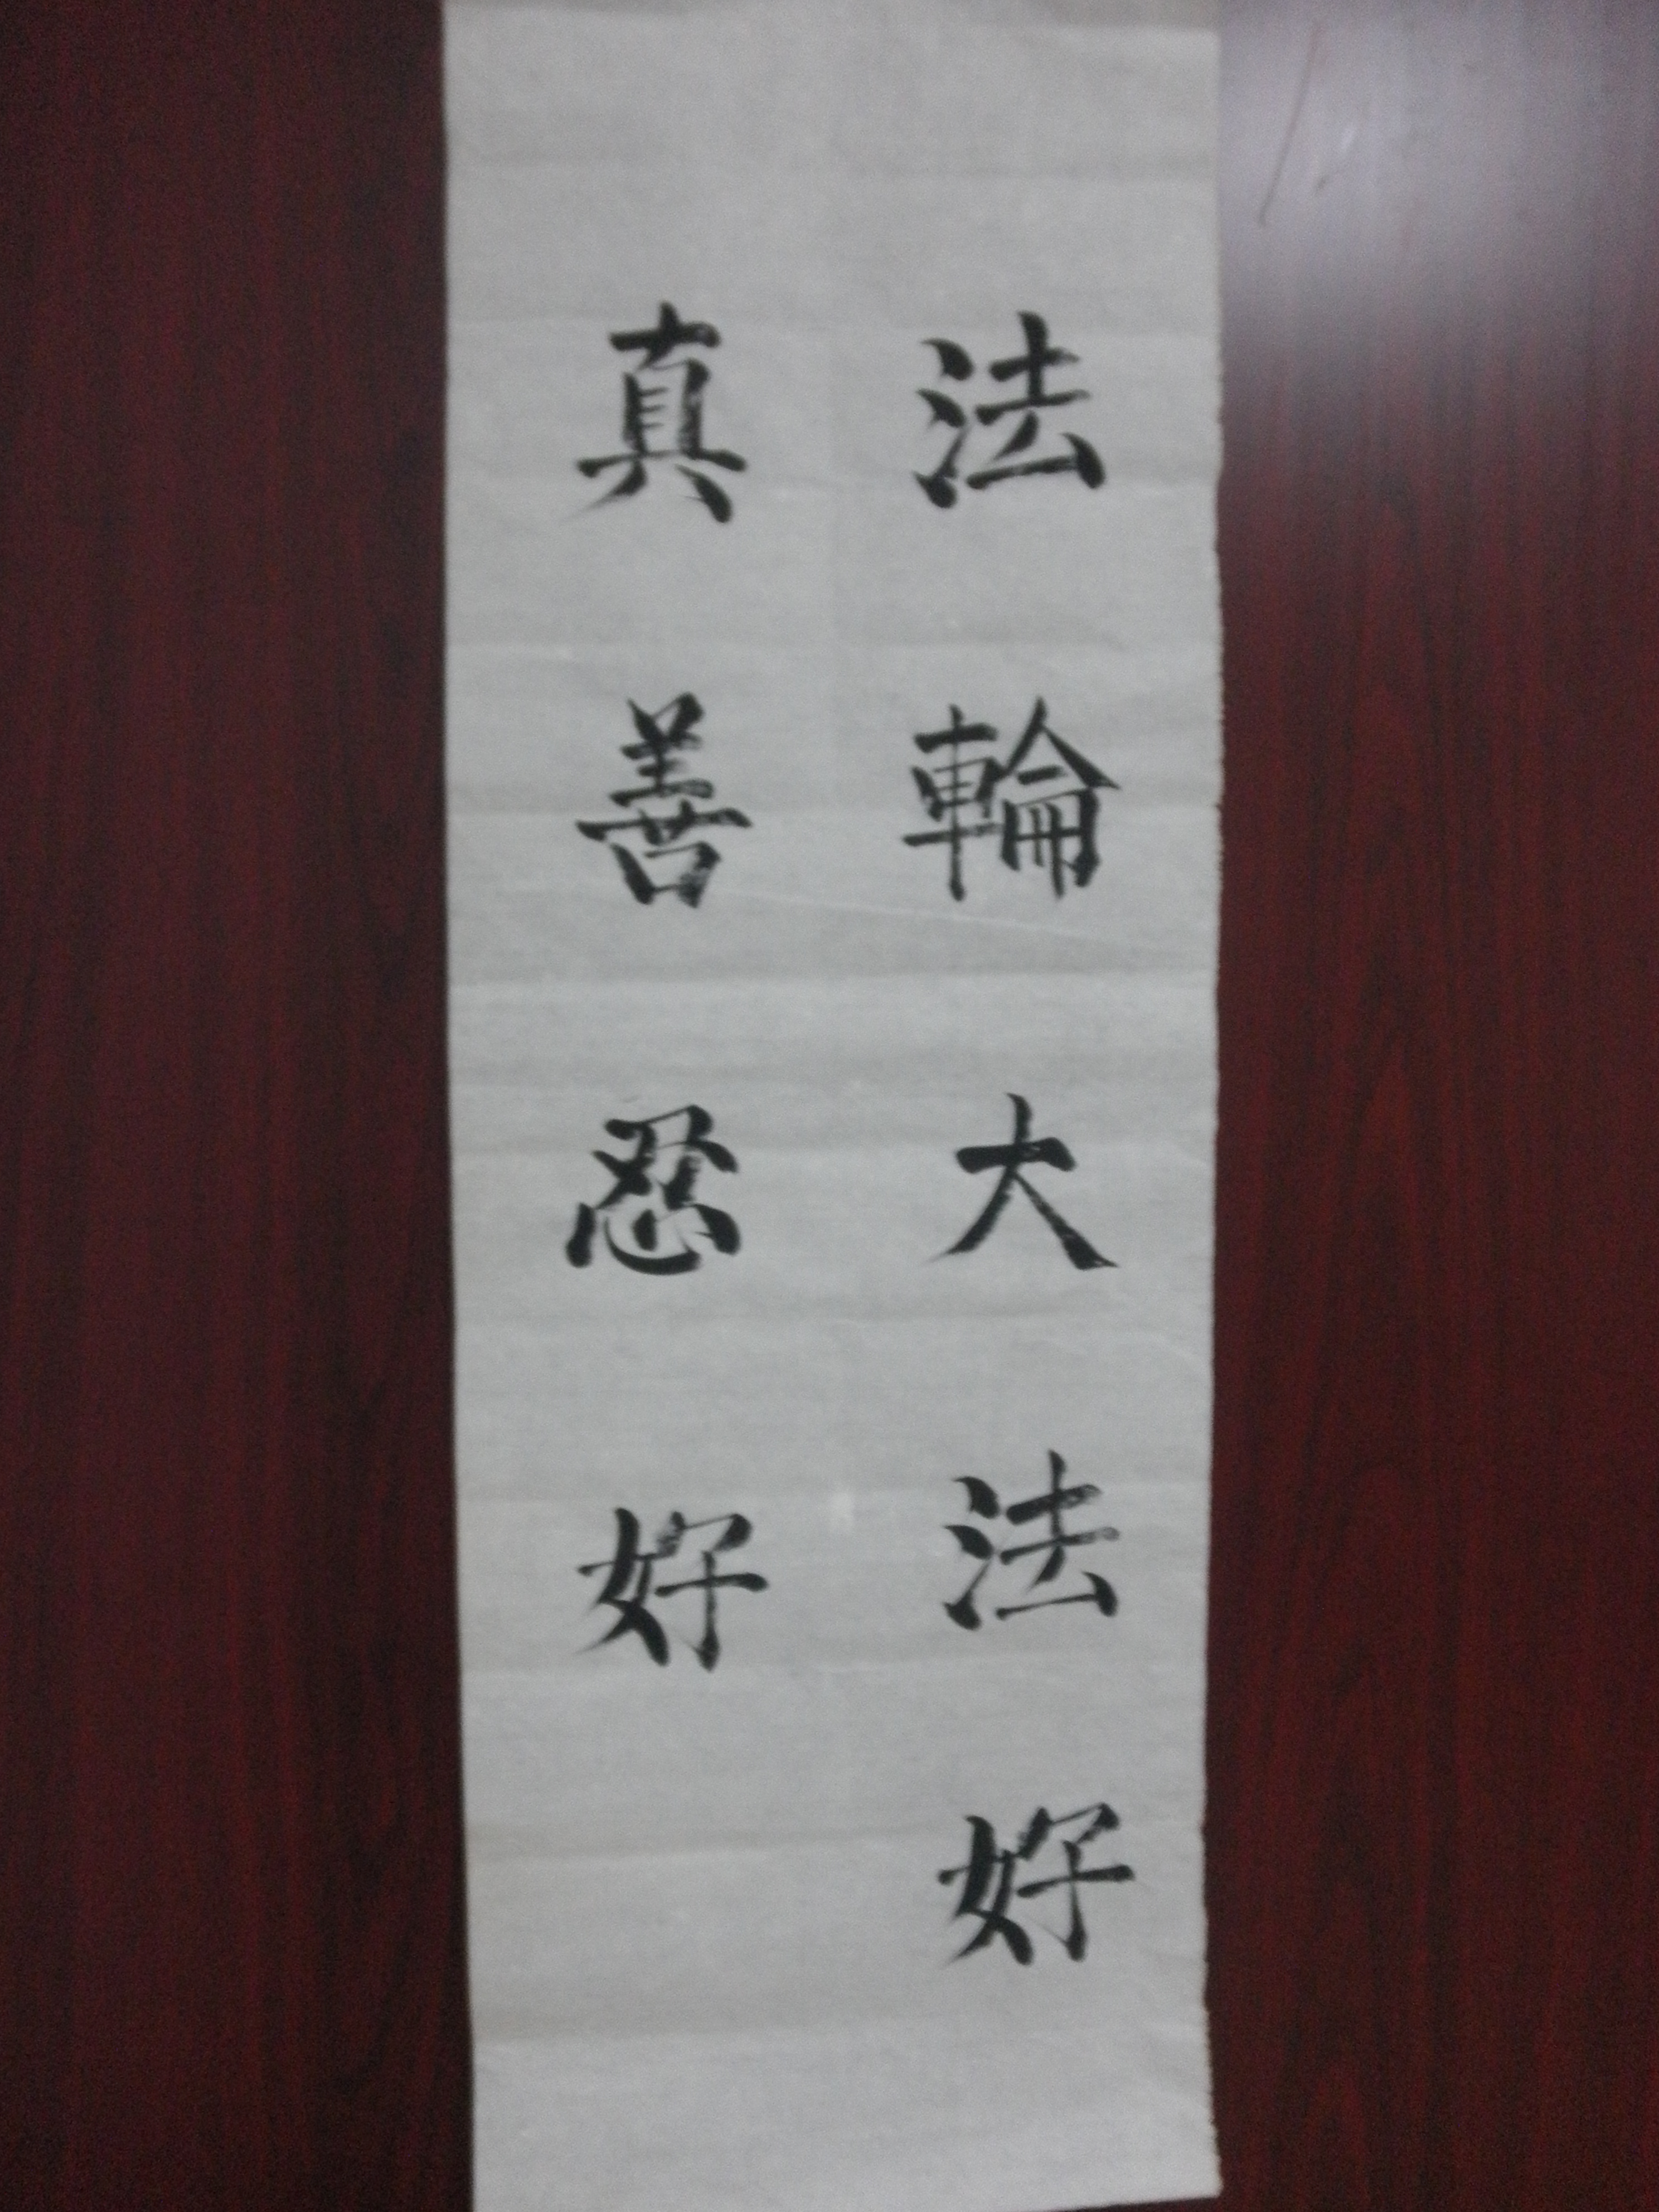 法輪大法好
真善忍好